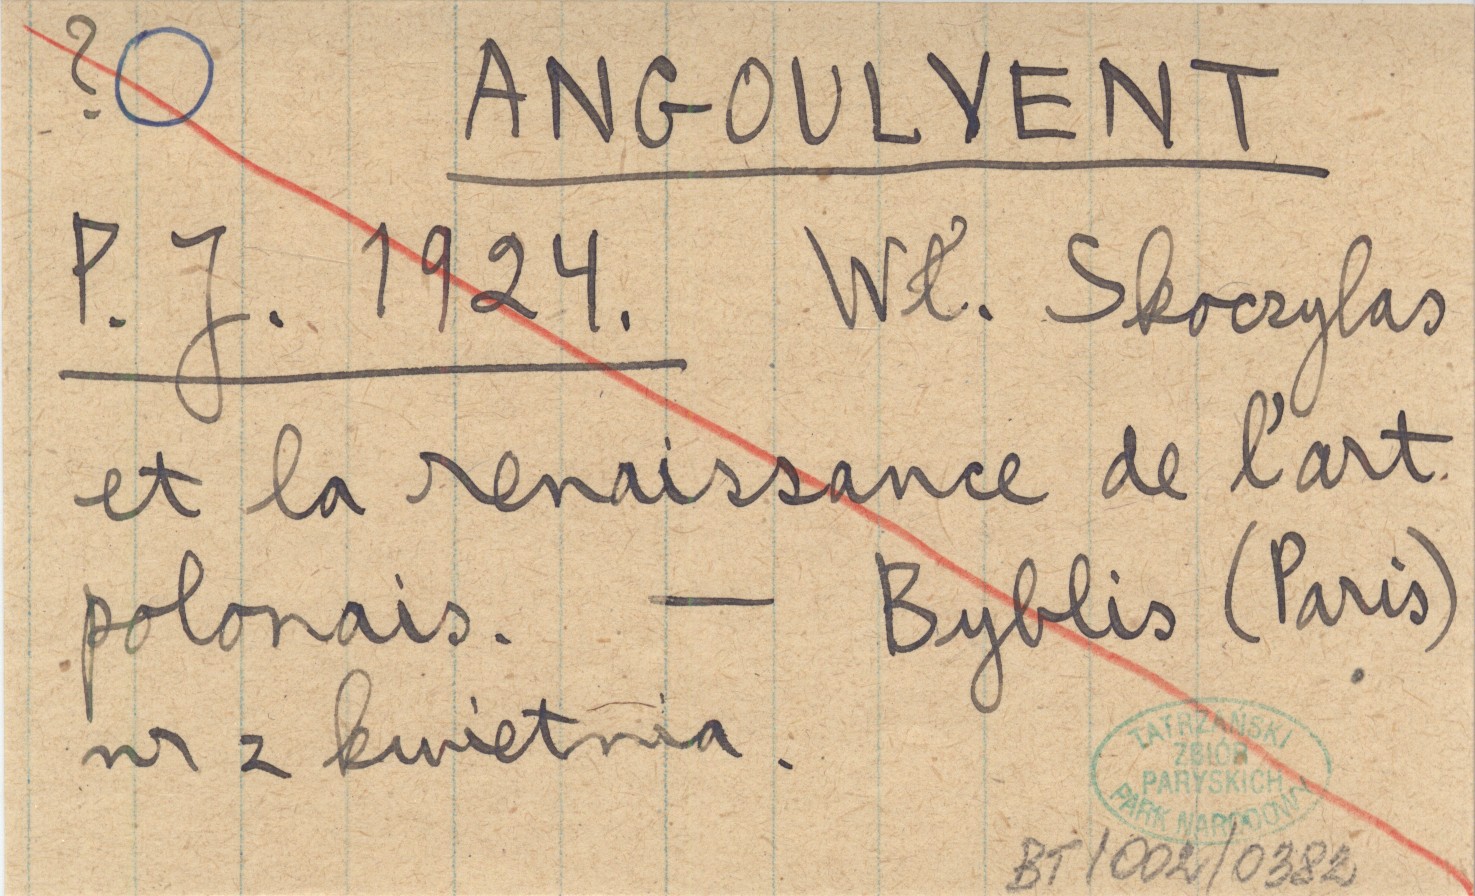 ?
ANGOULVENT
P. J. 1924. Wł. Skoczylas
et la renaissance de l'art
polonais. — Byblis (Paris)
nr z kwietnia.
TATRZAŃSKI
ZBIÓR
PARYSKICH
PARK NARODOWY
BT/002/0382